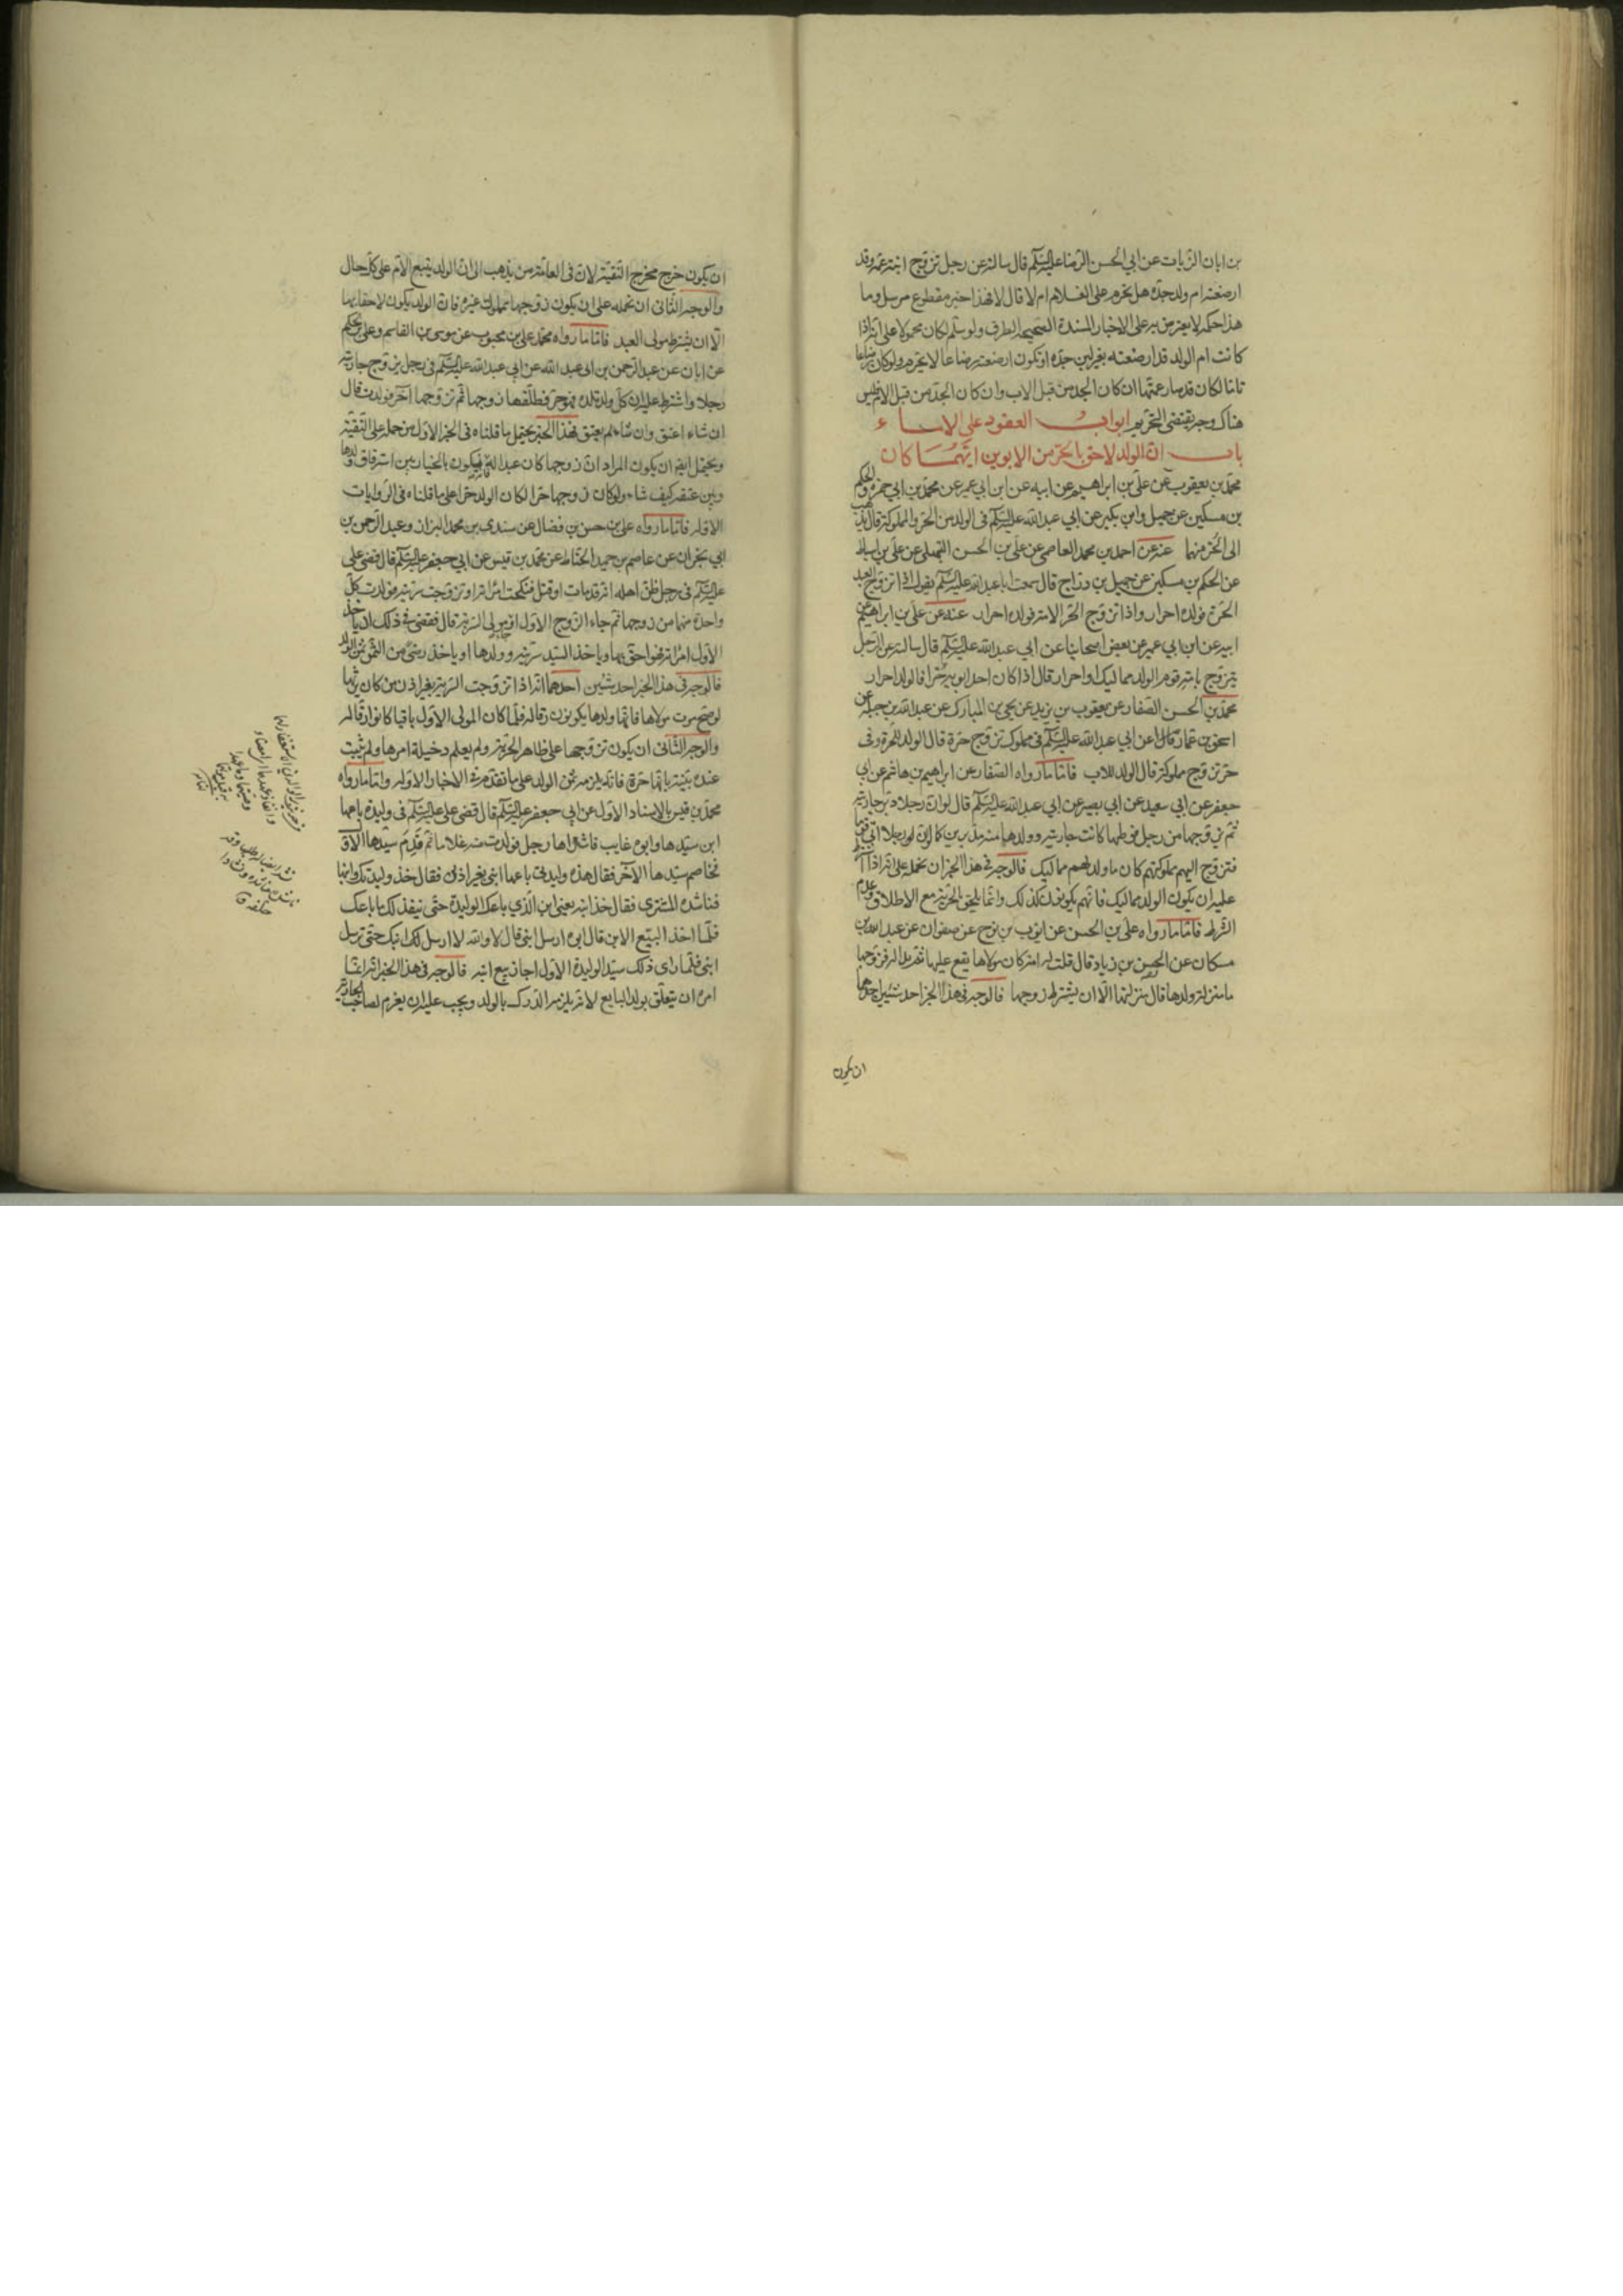 بن ابان الزيات عن ابي الحسن الرضا عليه السلم قال سالته عن رجل تزوج ابنة عمه وقد
ارضعته ام ولد جده هل تحرم على الغلام ام لا قال لا فهذا خبر مقطوع مرسل وما
هذا حكمه لا يعترض به على الاخبار المسندة الصحيحة الطرف ولو سلم لكان محمولا على انه اذا
كانت ام الولد قد ارضعته بغير لبن جده او تكون ارضعته رضاعا لا يحرم ولو كان رضاعا
تاما لكان قد صار عمها ان كان الجد من قبل الاب وان كان الجد من قبل الام فليس
هناك وجه يقتضى التحريم ابواب العقود على الاماء
باب ان الولد لاحق بالحر من الابوين ايهما كان
محمد بن يعقوب عن علي بن ابراهيم عن ابيه عن ابن ابي عمير عن محمد بن ابي حمزه والحكم
بن مسكين عن جميل وابن بكير عن ابي عبد الله عليه السلم فى الولد من الحر والمملوكة قال يذهب
الى الحر منهما عنه عن احمد بن محمد العاصمى عن علي بن الحسن التيملى عن علي بن اسباط
عن الحكم بن مسكين عن جميل بن دراج قال سمعت ابا عبد الله عليه السلم يقول اذا تزوج العبد
الحرة فولده احرار واذا تزوج الحر الامة فولده احرار عنه عن علي بن ابراهيم عن
ابيه عن ابن ابي عمير عن بعض اصحابنا عن ابي عبد الله عليه السلم قال سالته عن الرجل
يتزوج بامة قوم الولد مماليك او احرار قال اذا كان احد ابويه حرا فالولد احرار
محمد بن الحسن الصفار عن يعقوب بن يزيد عن يحيى بن المبارك عن عبد الله بن جبلة عن
اسحق بن عمار عن ابي عبد الله عليه السلم فى مملوك تزوج حرة قال الولد للحرة وفى
حر تزوج مملوكة قال الولد للاب فاما ما رواه الصفار عن ابراهيم بن هاشم عن ابي
جعفر عن ابي سعيد عن ابي بصير عن ابي عبد الله عليه السلم قال لو ان رجلا دبر جاريته
ثم زوجها من رجل فوطئها كانت جاريته وولدها منه مدبرين كما لو ان رجلا اتى قوما
فتزوج اليهم مملوكتهم كان ما ولد لهم مماليك فالوجه فى هذا الخبر ان نحمله على انه اذا
عليه ان يكون الولد مماليك فانهم يكونون كذلك وانما يلحق بالحرية مع الاطلاق وعدم
الشرط فاما ما رواه علي بن الحسن عن ايوب بن نوح عن صفوان عن عبد الله بن
مسكان عن الحسن بن زياد قال قلت له امة كان مولاها يقع عليها ثم بدا له فزوجها
ما منزلة ولدها قال بمنزلتها الا ان يشترط زوجها فالوجه فى هذا الخبر احد شيئين احدهما
ان يكون
ان يكون خرج مخرج التقية لان فى العامة من يذهب الى ان الولد يتبع الام على كل حال
والوجه الثانى ان نحمله على ان يكون زوجها مملوك غيره فان الولد يكون لاحقا بها
الا ان يشترط مولى العبد فاما ما رواه محمد علي بن محبوب عن موسى بن القاسم وعلي بن الحكم
عن ابان عن عبد الرحمن بن ابى عبد الله عن ابي عبد الله عليه السلم فى رجل زوج جاريته
رجلا واشترط عليه ان كل ولد تلده فهو حر فطلقها زوجها ثم تزوجها آخر فولدت قال
ان شاء اعتق وان شاء لم يعتق فهذا الخبر يحتمل ما قلناه فى الخبر الاول من حمله على التقية
ويحتمل ايضا ان يكون المراد ان زوجها كان عبدا فيكون بالخيار بين استرقاق ولدها
وبين عتقه كيف شاء ولو كان زوجها حرا لكان الولد حرا على ما قلناه فى الروايات
الاولة فاما ما رواه علي بن حسن بن فضال عن سندي بن محمد البزاز وعبد الرحمن بن
ابي نجران عن عاصم بن حميد الحناط عن محمد بن قيس عن ابي جعفر عليه السلم قال قضى على
عليه السلم فى رجل ظن اهله انه قد مات او قتل فنكحت امراته او تزوجت سريته فولدت كل
واحدة منهما من زوجها ثم جاء الزوج الاول او مولى السرية قال فقضى فى ذلك ان ياخذ
الاول امراته فهو احق بها وياخذ السيد سريته وولدها او ياخذ رضى من الثمن ثمن الولد
فالوجه فى هذا الخبر احد شيئين احدهما انه اذا تزوجت السرية بغير اذن من كان يرثها
لو صح موت مولاها فانها وولدها يكونون رقا له فلما كان المولى الاول باقيا كانوا رقا له
والوجه الثانى ان يكون تزوجها على ظاهر الحرية ولم يعلم دخيلة امرها ولم يثبت
عنده بينة بانها حرة فانه يلزمه ثمن الولد على ما تقدم فى الاخبار الاولة واما ما رواه
محمد بن قيس بالاسناد الاول عن ابي جعفر عليه السلم قال قضى على عليه السلم فى وليدة باعها
ابن سيدها وابوه غايب فاشتراها رجل فولدت منه غلاما ثم قدم سيدها الاول
فخاصم سيدها الآخر فقال هذه وليدتى باعها ابنى بغير اذنى فقال خذ وليدتك وابنها
فناشده المشترى فقال خذ ابنه يعنى ابن الذي باعك الوليدة حتى ينفذ لك ما باعك
فلما اخذ البيع الابن قال ابوه ارسل ابنى قال لا والله لا ارسل لك ابنك حتى ترسل
ابنى فلما راى ذلك سيد الوليدة الاول اجاز بيع ابنه فالوجه فى هذا الخبر انه انما
امره ان يتعلق بولد البايع لانه يلزمه الدرك بالولد ويجب عليه ان يغرم لصاحب الجارية